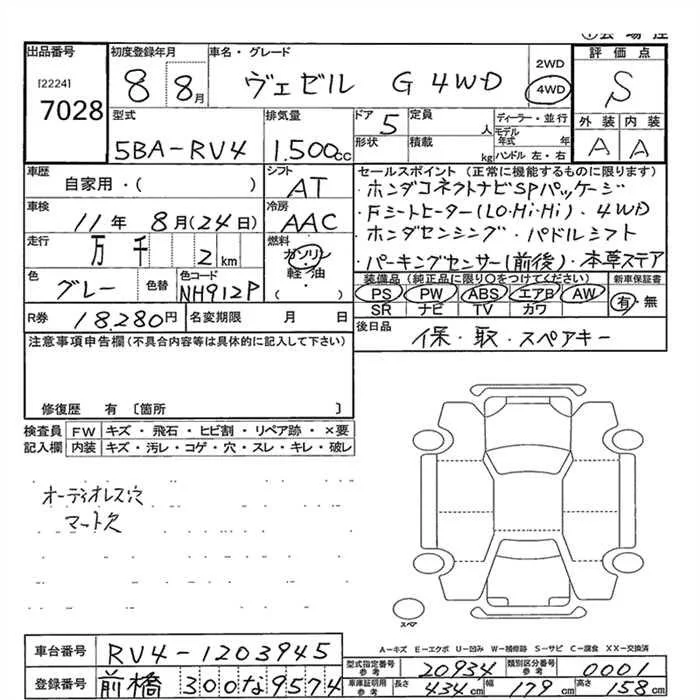 出品番号
[2224]
7028
初度登録年月
8 8月
車名・グレード
ヴェゼル G 4WD
2WD
4WD
評価点
S
外装 内装
A A
型式
5BA-RV4
排気量
1.500cc
ドア 5
形状
定員 人
積載 kg
ディーラー・並行
モデル年式 年
ハンドル 左・右
車歴
自家用・( )
車検
11年 8月(24日)
走行
万千 2 km
色
グレー
色替
色コード
NH912P
シフト
AT
冷房
AAC
燃料
ガソリン
軽・油
( )
セールスポイント(正常に機能するものに限ります)
・ホンダコネクトナビSPパッケージ
・Fシートヒーター(LO・Hi・Hi)・4WD
・ホンダセンシング・パドルシフト
・パーキングセンサー(前後)・本革ステア
装備品(純正品に限り○をつけてください)
PS PW ABS エアB AW
SR ナビ TV カワ
新車保証書
有・無
R券 18.280円
名変期限 月 日
後日品 保・取・スペアキー
注意事項申告欄(不具合内容等は具体的に記入して下さい)
修復歴 有 〔箇所 〕
検査員記入欄
FW キズ・飛石・ヒビ割・リペア跡・×要
内装 キズ・汚レ・コゲ・穴・スレ・キレ・破レ
オーディオレス穴
マット欠
スペア
A-キズ E-エクボ U-凹み W-補修跡 S-サビ C-腐食 XX-交換済
車台番号 RV4-1203945
登録番号 前橋 300な9574
型式指定番号 参考 20934
類別区分番号 参考 0001
車庫証明用 参考 長さ 434cm 幅 179cm 高さ 158cm